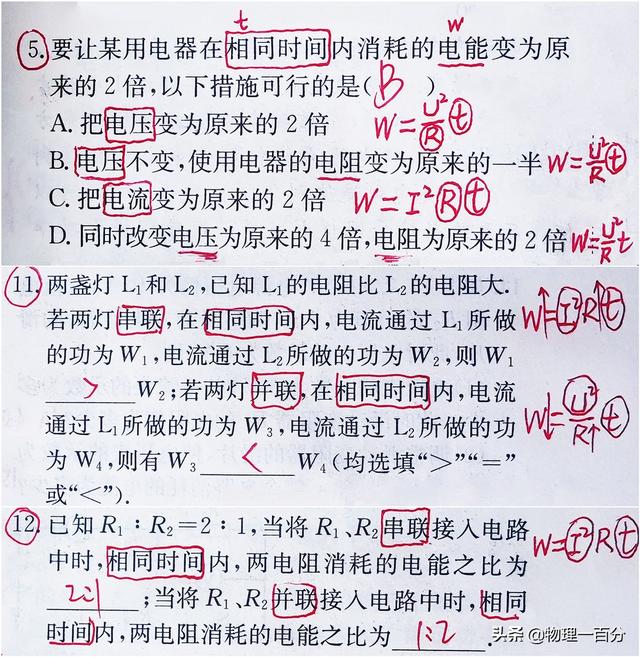 t w
5. 要让某用电器在相同时间内消耗的电能变为原
来的 2 倍,以下措施可行的是( B )
A. 把电压变为原来的 2 倍 W=U²/R t
B. 电压不变,使用电器的电阻变为原来的一半 W=U²/R t
C. 把电流变为原来的 2 倍 W=I²Rt
D. 同时改变电压为原来的 4 倍,电阻为原来的 2 倍 W=U²/R t
11. 两盏灯 L₁和 L₂,已知 L₁的电阻比 L₂的电阻大.
若两灯串联,在相同时间内,电流通过 L₁所做 W↑=I²R↑t
的功为 W₁,电流通过 L₂所做的功为 W₂,则 W₁
> W₂;若两灯并联,在相同时间内,电流
通过 L₁所做的功为 W₃,电流通过 L₂所做的功 W↓=U²/R↑ t
为 W₄,则有 W₃ < W₄(均选填“>”“=”
或“<”).
12. 已知 R₁∶R₂=2∶1,当将 R₁、R₂串联接入电路 W=I²Rt
中时,相同时间内,两电阻消耗的电能之比为
2:1 ;当将 R₁、R₂并联接入电路中时,相同
时间内,两电阻消耗的电能之比为 1:2 .
头条 @物理一百分